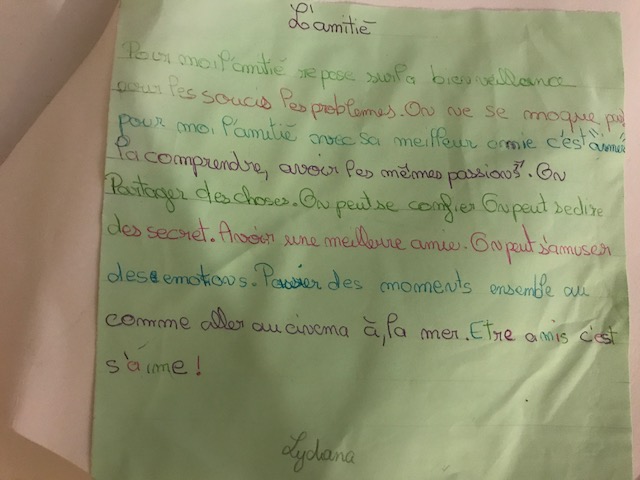 L'amitié
Pour moi l'amitié repose sur la bienveillance
pour les soucis les problèmes. On ne se moque pas
pour moi l'amitié avec sa meilleur amie c'est
la comprendre, avoir les mêmes passions. On
Partager des choses. On peut se confier On peut se dire
des secret. Avoir une meilleure amie. On peut s'amuser
des emotions. Passer des moments ensemble au
comme aller au cinema à la mer. Etre amis c'est
s'aime !
Lydiana